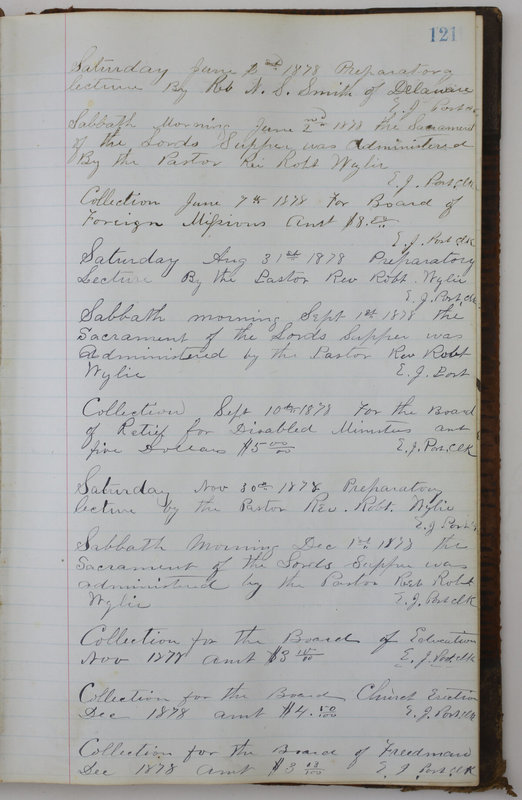 121
Saturday June 1878 Preparatory
lecture By Rev N. S. Smith of Delaware
E. J. Post
Sabbath Morning June 2nd 1878 the Sacrament
of the Lords Supper was Administered
By the Pastor Rev Robt Wylie
E. J. Post Clk
Collection June 7th 1878 For Board of
Foreign Missions amt $8.
E. J. Post Clk
Saturday Aug 31st 1878 Preparatory
Lecture By the Pastor Rev Robt. Wylie
E. J. Post Clk
Sabbath morning Sept 1st 1878 the
Sacrament of the Lords Supper was
Administered by the Pastor Rev Robt
Wylie E. J. Post
Collection Sept 10th 1878 For the Board
of Relief for Disabled Ministers amt
five Dollars $5 00/00 E. J. Post Clk
Saturday Nov 30th 1878 Preparatory
lecture by the Pastor Rev. Robt. Wylie
E. J. Post
Sabbath Morning Dec 1st 1878 the
Sacrament of the Lords Supper was
administered by the Pastor Rev Robt
Wylie E. J. Post Clk
Collection for the Board of Education
Nov 1878 amt $3 E. J. Post Clk
Collection for the Board Church Erection
Dec 1878 amt $4. 50/100 E. J. Post Clk
Collection for the Board of Freedman
Dec 1878 amt $3 E. J. Post Clk